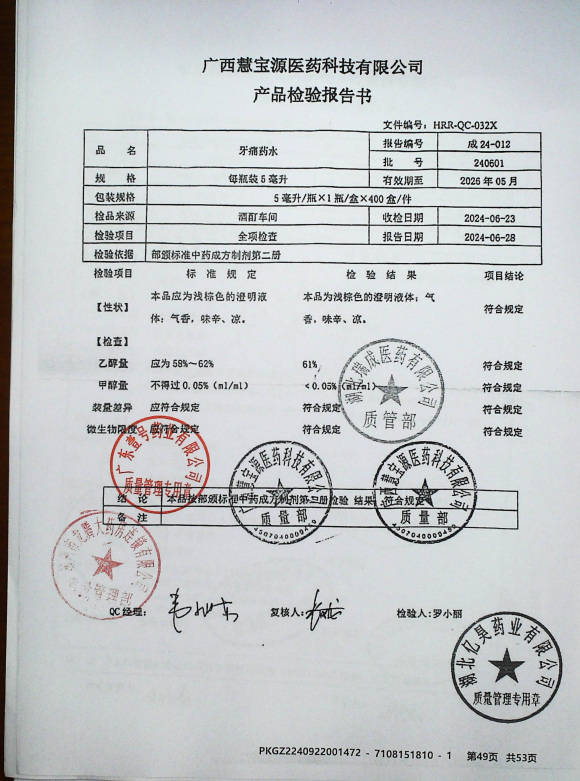 广西慧宝源医药科技有限公司
产品检验报告书
文件编号：HRR-QC-032X
品 名 牙痛药水 报告编号 成24-012
批 号 240601
规 格 每瓶装5毫升 有效期至 2026年05月
包装规格 5毫升/瓶×1瓶/盒×400盒/件
检品来源 酒酊车间 收检日期 2024-06-23
检验项目 全项检查 报告日期 2024-06-28
检验依据 部颁标准中药成方制剂第二册
检验项目 标准规定 检验结果 项目结论
【性状】 本品应为浅棕色的澄明液体；气香，味辛、凉。 本品为浅棕色的澄明液体；气香，味辛、凉。 符合规定
【检查】
乙醇量 应为58%～62% 61% 符合规定
甲醇量 不得过0.05%（ml/ml） ＜0.05%（ml/ml） 符合规定
装量差异 应符合规定 符合规定 符合规定
微生物限度 应符合规定 符合规定 符合规定
湖北瑞成医药有限公司
质管部
广东壹号药业有限公司
质量管理专用章
广西慧宝源医药科技有限公司
质量部
广西慧宝源医药科技有限公司
质量部
结 论 本品按部颁标准中药成方制剂第二册检验 结果：符合规定
备 注
大药房连锁有限公司
质量管理部
QC经理： 复核人： 检验人：罗小丽
湖北亿昊药业有限公司
质量管理专用章
PKGZ2240922001472 - 7108151810 - 1 第49页 共53页